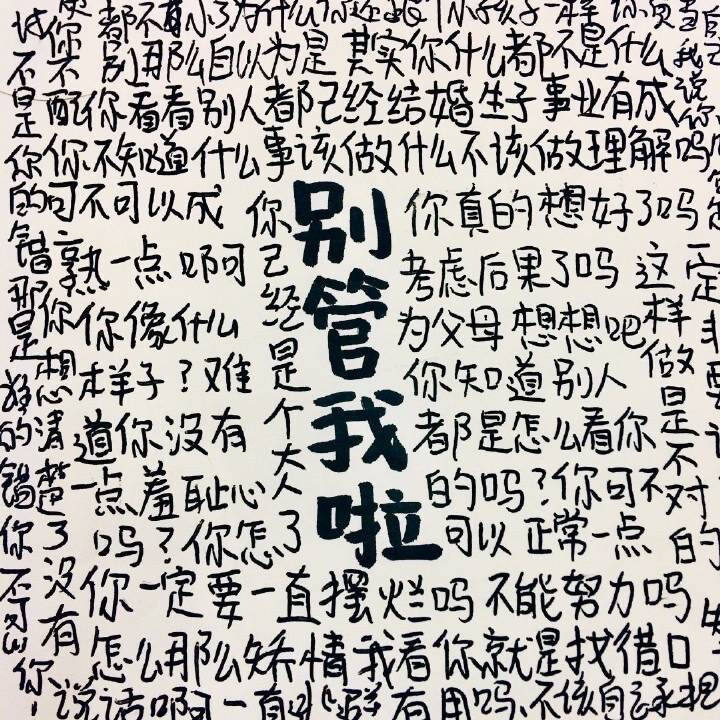 别那么自以为是其实你什么都不是什么
你看看别人都已经结婚生子事业有成
你不知道什么事该做什么不该做理解吗
不是你的错那是谁的错你
可不可以成
熟一点啊
你像什么
样子？难
道你没有
一点羞耻心
吗？你怎
你想清楚了没有
你已经是个大人了
别管我啦
你真的想好了吗
考虑后果了吗
为父母想想吧
你知道别人
都是怎么看你
的吗？你可不
可以正常一点
这样做是不对的
你一定要一直摆烂吗不能努力吗
怎么那么矫情我看你就是找借口
说话啊
有用吗不该自己承担